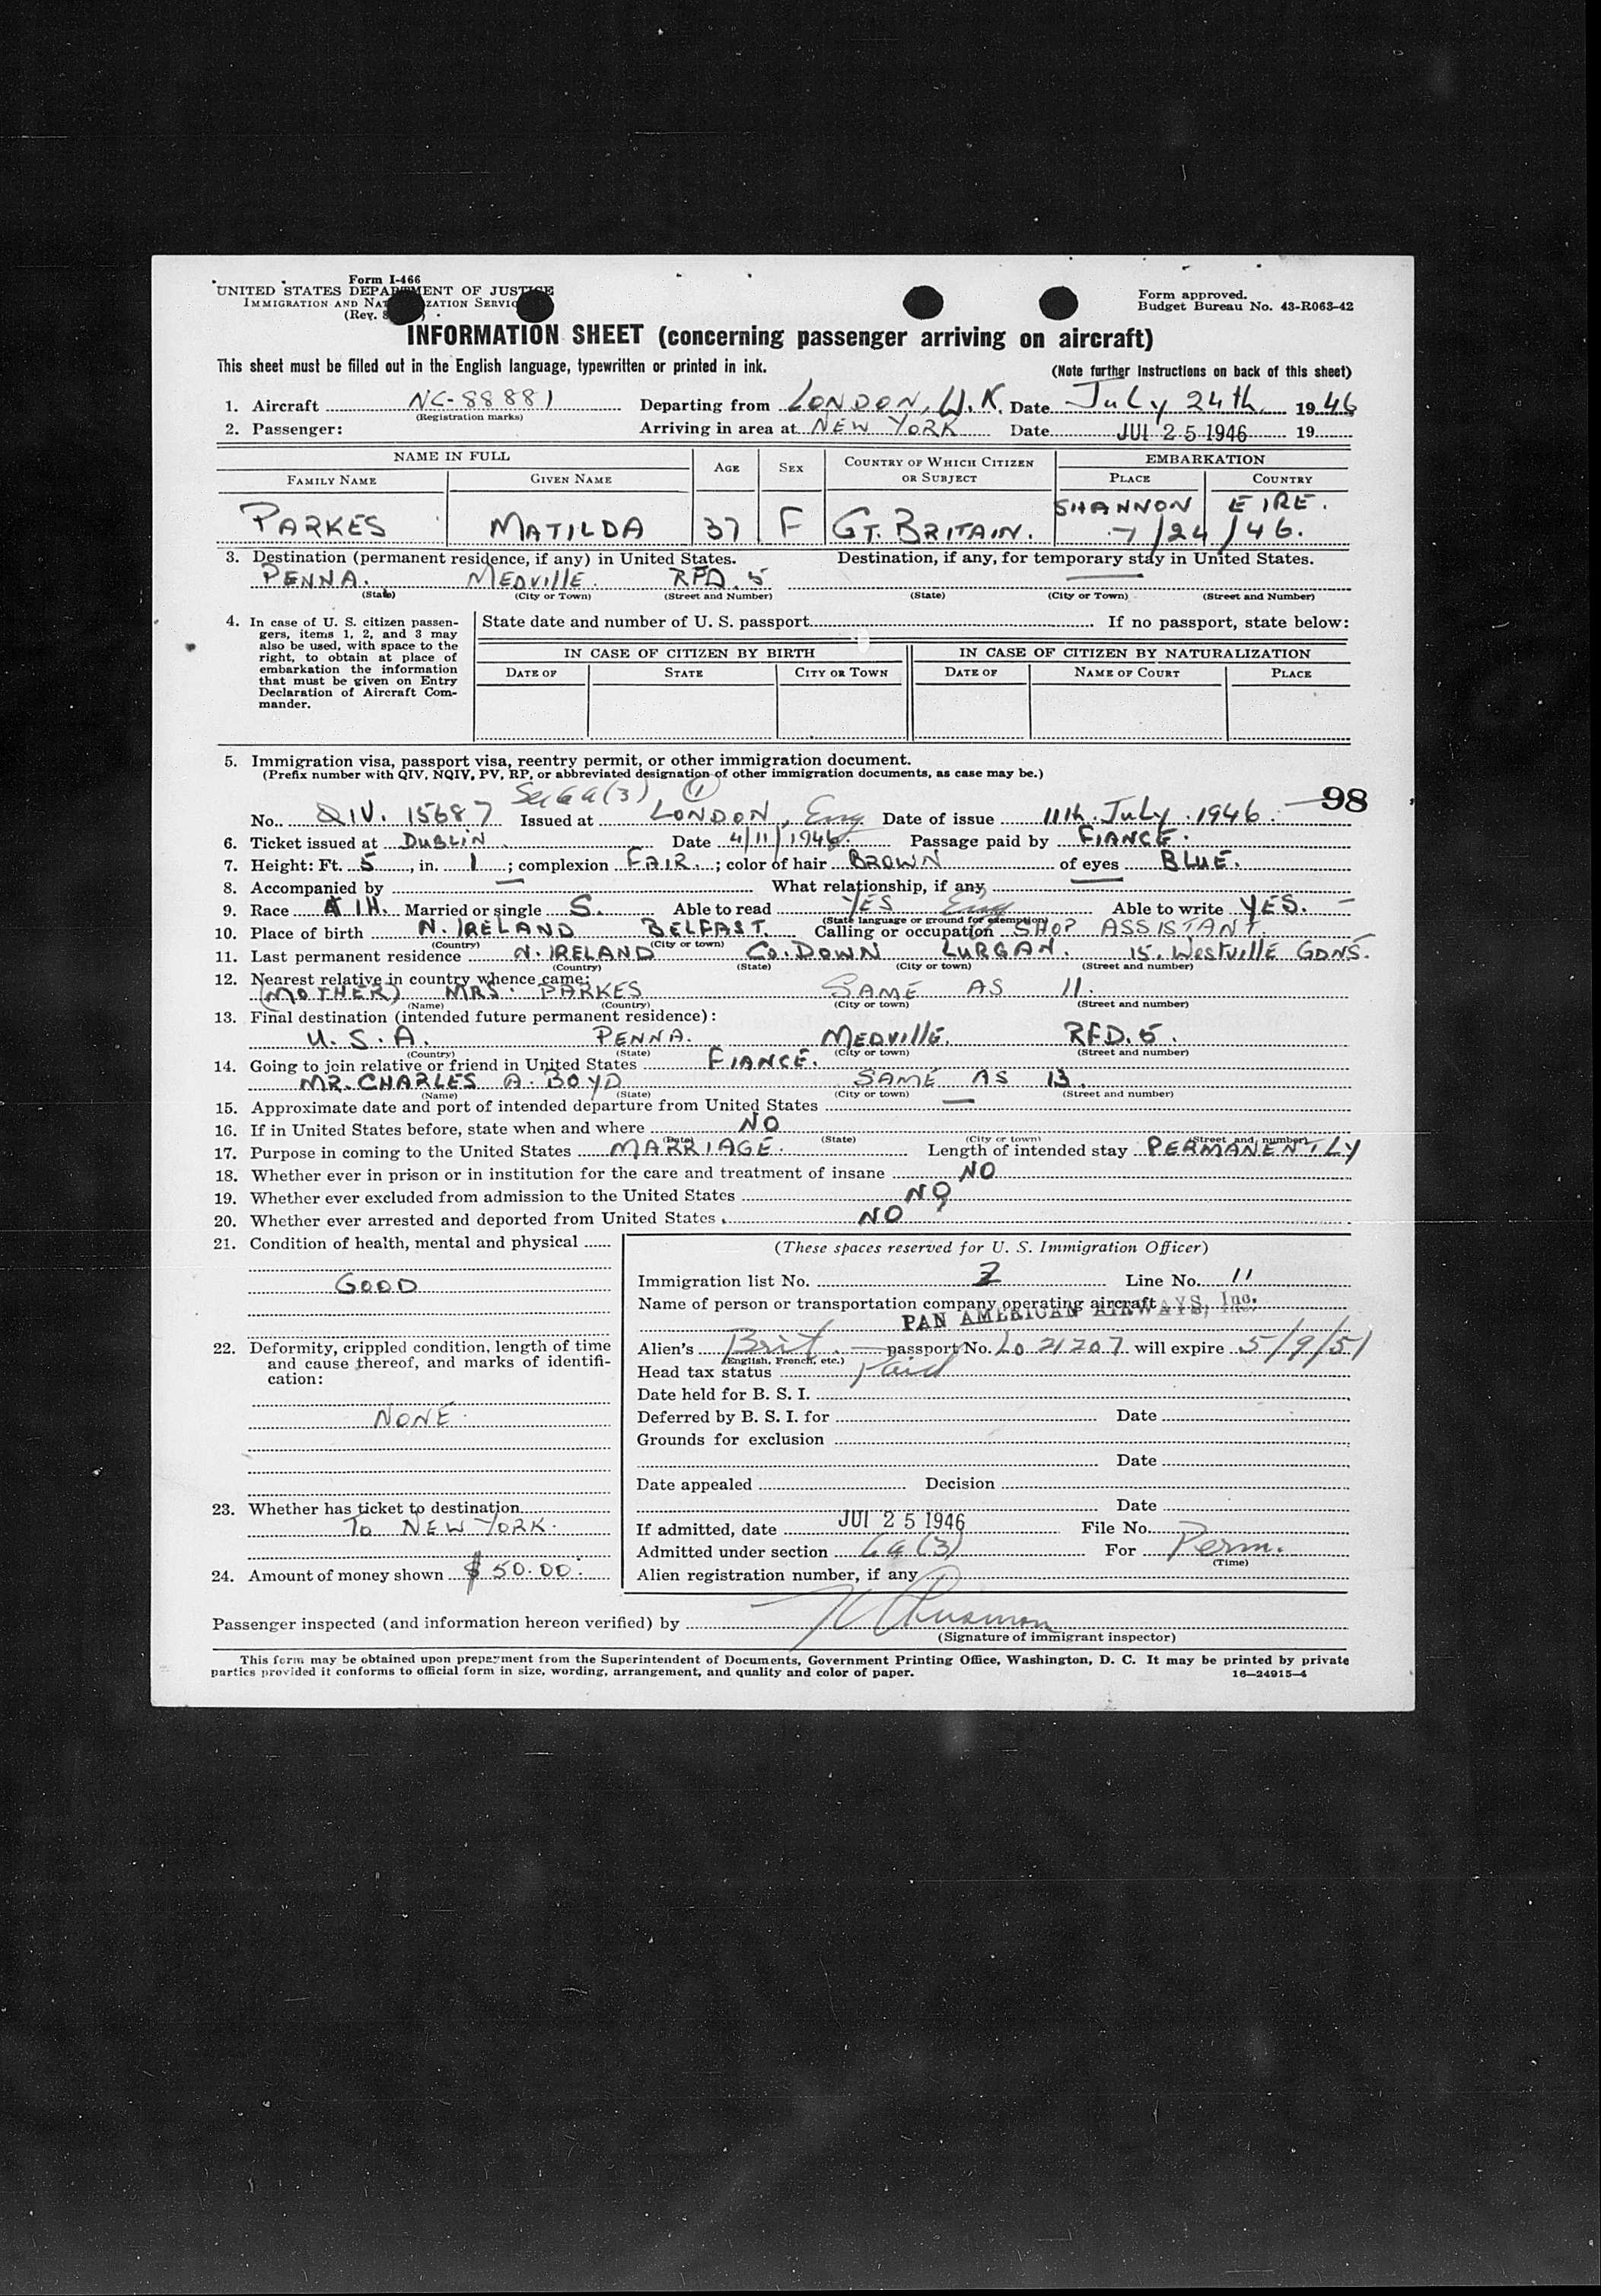 Form I-466
UNITED STATES DEPARTMENT OF JUSTICE
IMMIGRATION AND NATURALIZATION SERVICE
(Rev.
Form approved.
Budget Bureau No. 43-R063-42
INFORMATION SHEET (concerning passenger arriving on aircraft)
This sheet must be filled out in the English language, typewritten or printed in ink.
(Note further instructions on back of this sheet)
1. Aircraft NC-88881 Departing from LONDON, U.K. Date July 24th 1946
(Registration marks)
2. Passenger: Arriving in area at NEW YORK Date JUL 25 1946 19
NAME IN FULL AGE SEX COUNTRY OF WHICH CITIZEN OR SUBJECT EMBARKATION
FAMILY NAME GIVEN NAME PLACE COUNTRY
SHANNON EIRE.
PARKES MATILDA 37 F GT. BRITAIN. 7/24/46.
3. Destination (permanent residence, if any) in United States. Destination, if any, for temporary stay in United States.
PENNA. MEDVILLE. RFD. 5 —
(State) (City or Town) (Street and Number) (State) (City or Town) (Street and Number)
4. In case of U. S. citizen passengers, items 1, 2, and 3 may also be used, with space to the right, to obtain at place of embarkation the information that must be given on Entry Declaration of Aircraft Commander.
State date and number of U. S. passport If no passport, state below:
IN CASE OF CITIZEN BY BIRTH IN CASE OF CITIZEN BY NATURALIZATION
DATE OF STATE CITY OR TOWN DATE OF NAME OF COURT PLACE
5. Immigration visa, passport visa, reentry permit, or other immigration document.
(Prefix number with QIV, NQIV, PV, RP, or abbreviated designation of other immigration documents, as case may be.)
Sec 6a(3) 1 98
No. QIV. 15687 Issued at LONDON, Eng Date of issue 11th. July. 1946.
6. Ticket issued at DUBLIN. Date 4/11/1946. Passage paid by FIANCE.
7. Height: Ft. 5, in. 1; complexion FAIR.; color of hair BROWN of eyes BLUE.
8. Accompanied by — What relationship, if any —
9. Race IH. Married or single S. Able to read YES Eng Able to write YES. —
(State language or ground for exemption)
10. Place of birth N. IRELAND BELFAST. Calling or occupation SHOP ASSISTANT.
(Country) (City or town)
11. Last permanent residence N. IRELAND Co. DOWN LURGAN. 15. Westville GDNS.
(Country) (State) (City or town) (Street and number)
12. Nearest relative in country whence came:
(MOTHER) MRS. PARKES SAME AS 11.
(Name) (Country) (City or town) (Street and number)
13. Final destination (intended future permanent residence):
U. S. A. PENNA. MEDVILLE. RFD. 5.
(Country) (State) (City or town) (Street and number)
14. Going to join relative or friend in United States FIANCE.
MR. CHARLES A. BOYD SAME AS 13.
(Name) (State) (City or town) (Street and number)
15. Approximate date and port of intended departure from United States —
16. If in United States before, state when and where NO
(Date) (State) (City or town) (Street and number)
17. Purpose in coming to the United States MARRIAGE. Length of intended stay PERMANENTLY
18. Whether ever in prison or in institution for the care and treatment of insane NO
19. Whether ever excluded from admission to the United States NO
20. Whether ever arrested and deported from United States NO
21. Condition of health, mental and physical
GOOD
22. Deformity, crippled condition, length of time and cause thereof, and marks of identification:
NONE.
23. Whether has ticket to destination
To NEW YORK.
24. Amount of money shown $50.00.
(These spaces reserved for U. S. Immigration Officer)
Immigration list No. 2 Line No. 11
Name of person or transportation company operating aircraft
PAN AMERICAN AIRWAYS, Inc.
Alien's Brit. passport No. Lo 21207 will expire 5/9/51
(English, French, etc.)
Head tax status Paid
Date held for B. S. I.
Deferred by B. S. I. for Date
Grounds for exclusion
Date
Date appealed Decision
Date
If admitted, date JUL 25 1946 File No.
Admitted under section 6a(3) For Perm.
(Time)
Alien registration number, if any
Passenger inspected (and information hereon verified) by
(Signature of immigrant inspector)
This form may be obtained upon prepayment from the Superintendent of Documents, Government Printing Office, Washington, D. C. It may be printed by private
parties provided it conforms to official form in size, wording, arrangement, and quality and color of paper. 16—24915-4